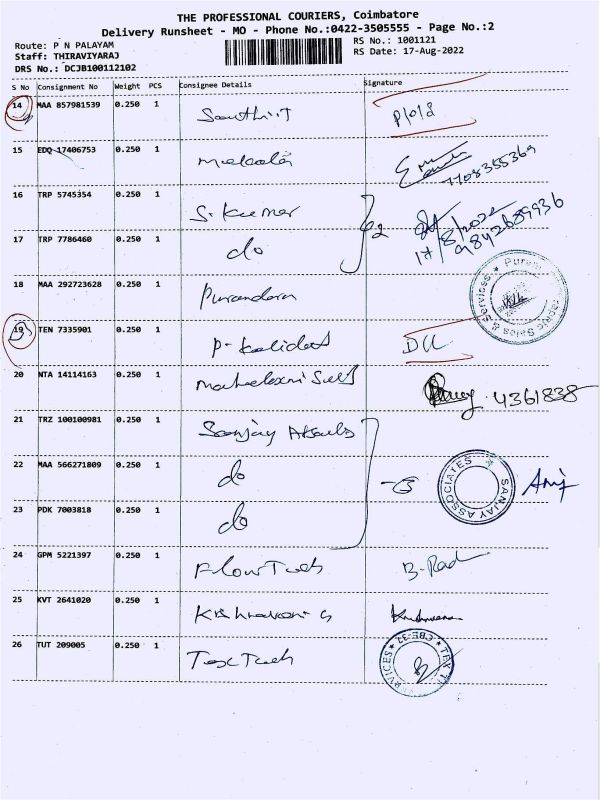 THE PROFESSIONAL COURIERS, Coimbatore
Delivery Runsheet - MO - Phone No.:0422-3505555 - Page No.:2
Route: P N PALAYAM RS No.: 1001121
Staff: THIRAVIYARAJ RS Date: 17-Aug-2022
DRS No.: DCJB100112102
S No Consignment No Weight PCS Consignee Details Signature
14 MAA 857981539 0.250 1
15 EDQ 17406753 0.250 1 7708355369
16 TRP 5745354 0.250 1 S. Kumar 17/8/2022
17 TRP 7786460 0.250 1 do 2 9842689936
18 MAA 292723628 0.250 1 Purandara
19 TEN 7335901 0.250 1 P. Kalidas DLL
20 NTA 14114163 0.250 1 4361838
21 TRZ 100100981 0.250 1 Sanjay
22 MAA 566271809 0.250 1 do SANJAY ASSOCIATES
23 PDK 7003818 0.250 1 do
24 GPM 5221397 0.250 1 Flow Tech
25 KVT 2641020 0.250 1
26 TUT 209005 0.250 1 Tex Tech